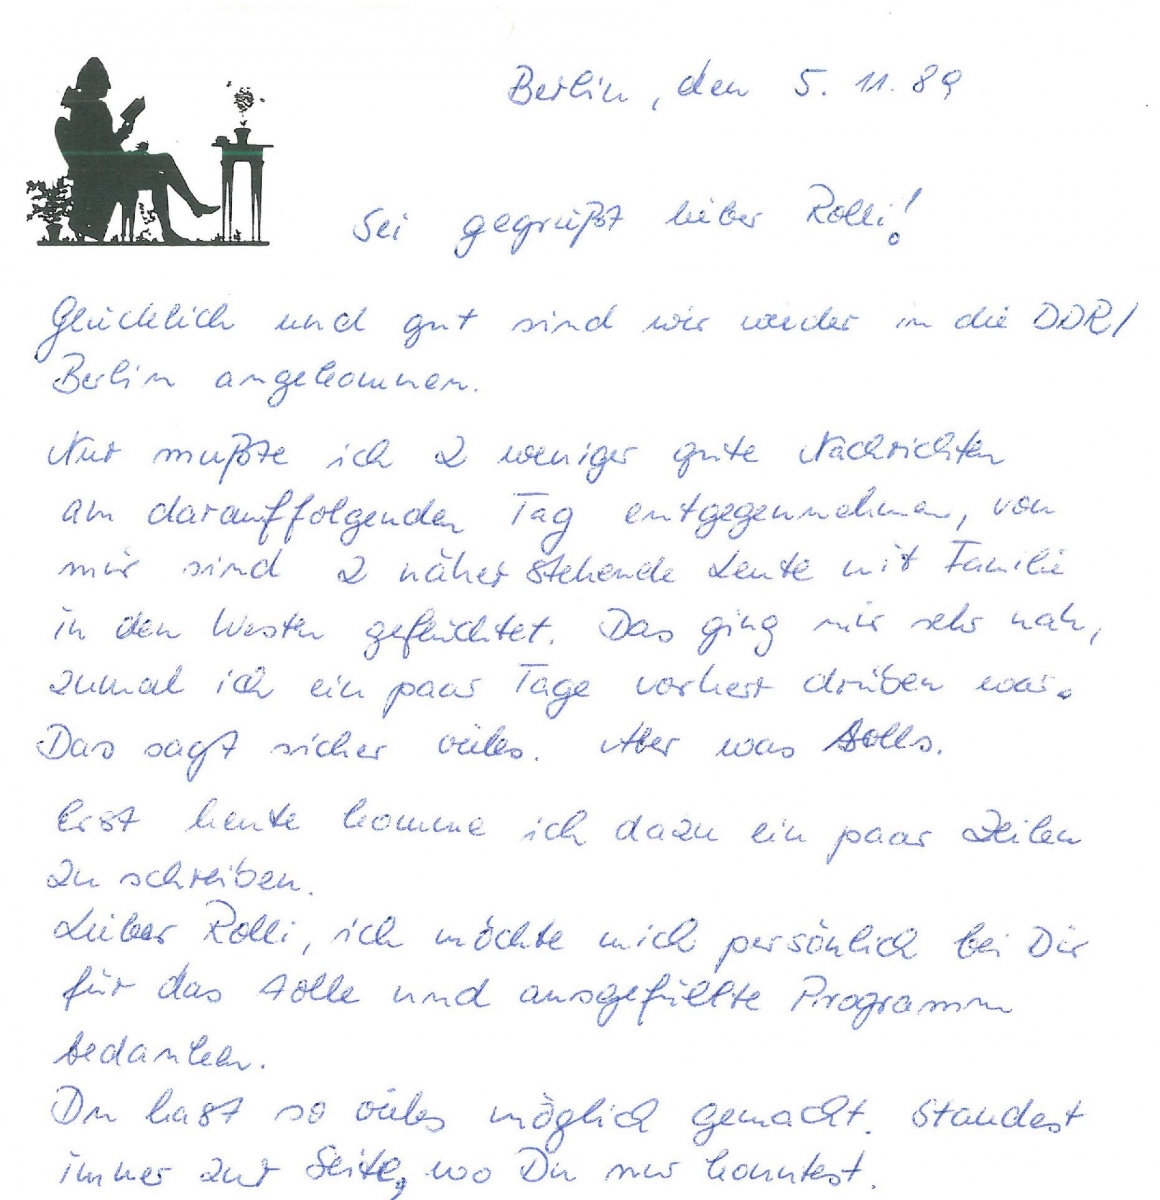 Berlin, den 5. 11. 89
Sei gegrüßt lieber Rolli!
Glücklich und gut sind wir wieder in die DDR/
Berlin angekommen.
Nur mußte ich 2 weniger gute Nachrichten
am darauffolgenden Tag entgegennehmen, von
mir sind 2 näher stehende Leute mit Familie
in den Westen geflüchtet. Das ging mir sehr nah,
zumal ich ein paar Tage vorher drüben war.
Das sagt sicher vieles. Aber was solls.
Erst heute komme ich dazu ein paar Zeilen
zu schreiben.
Lieber Rolli, ich möchte mich persönlich bei Dir
für das tolle und ausgefüllte Programm
bedanken.
Du hast so vieles möglich gemacht. Standest
immer zur Seite, wo Du nur konntest.